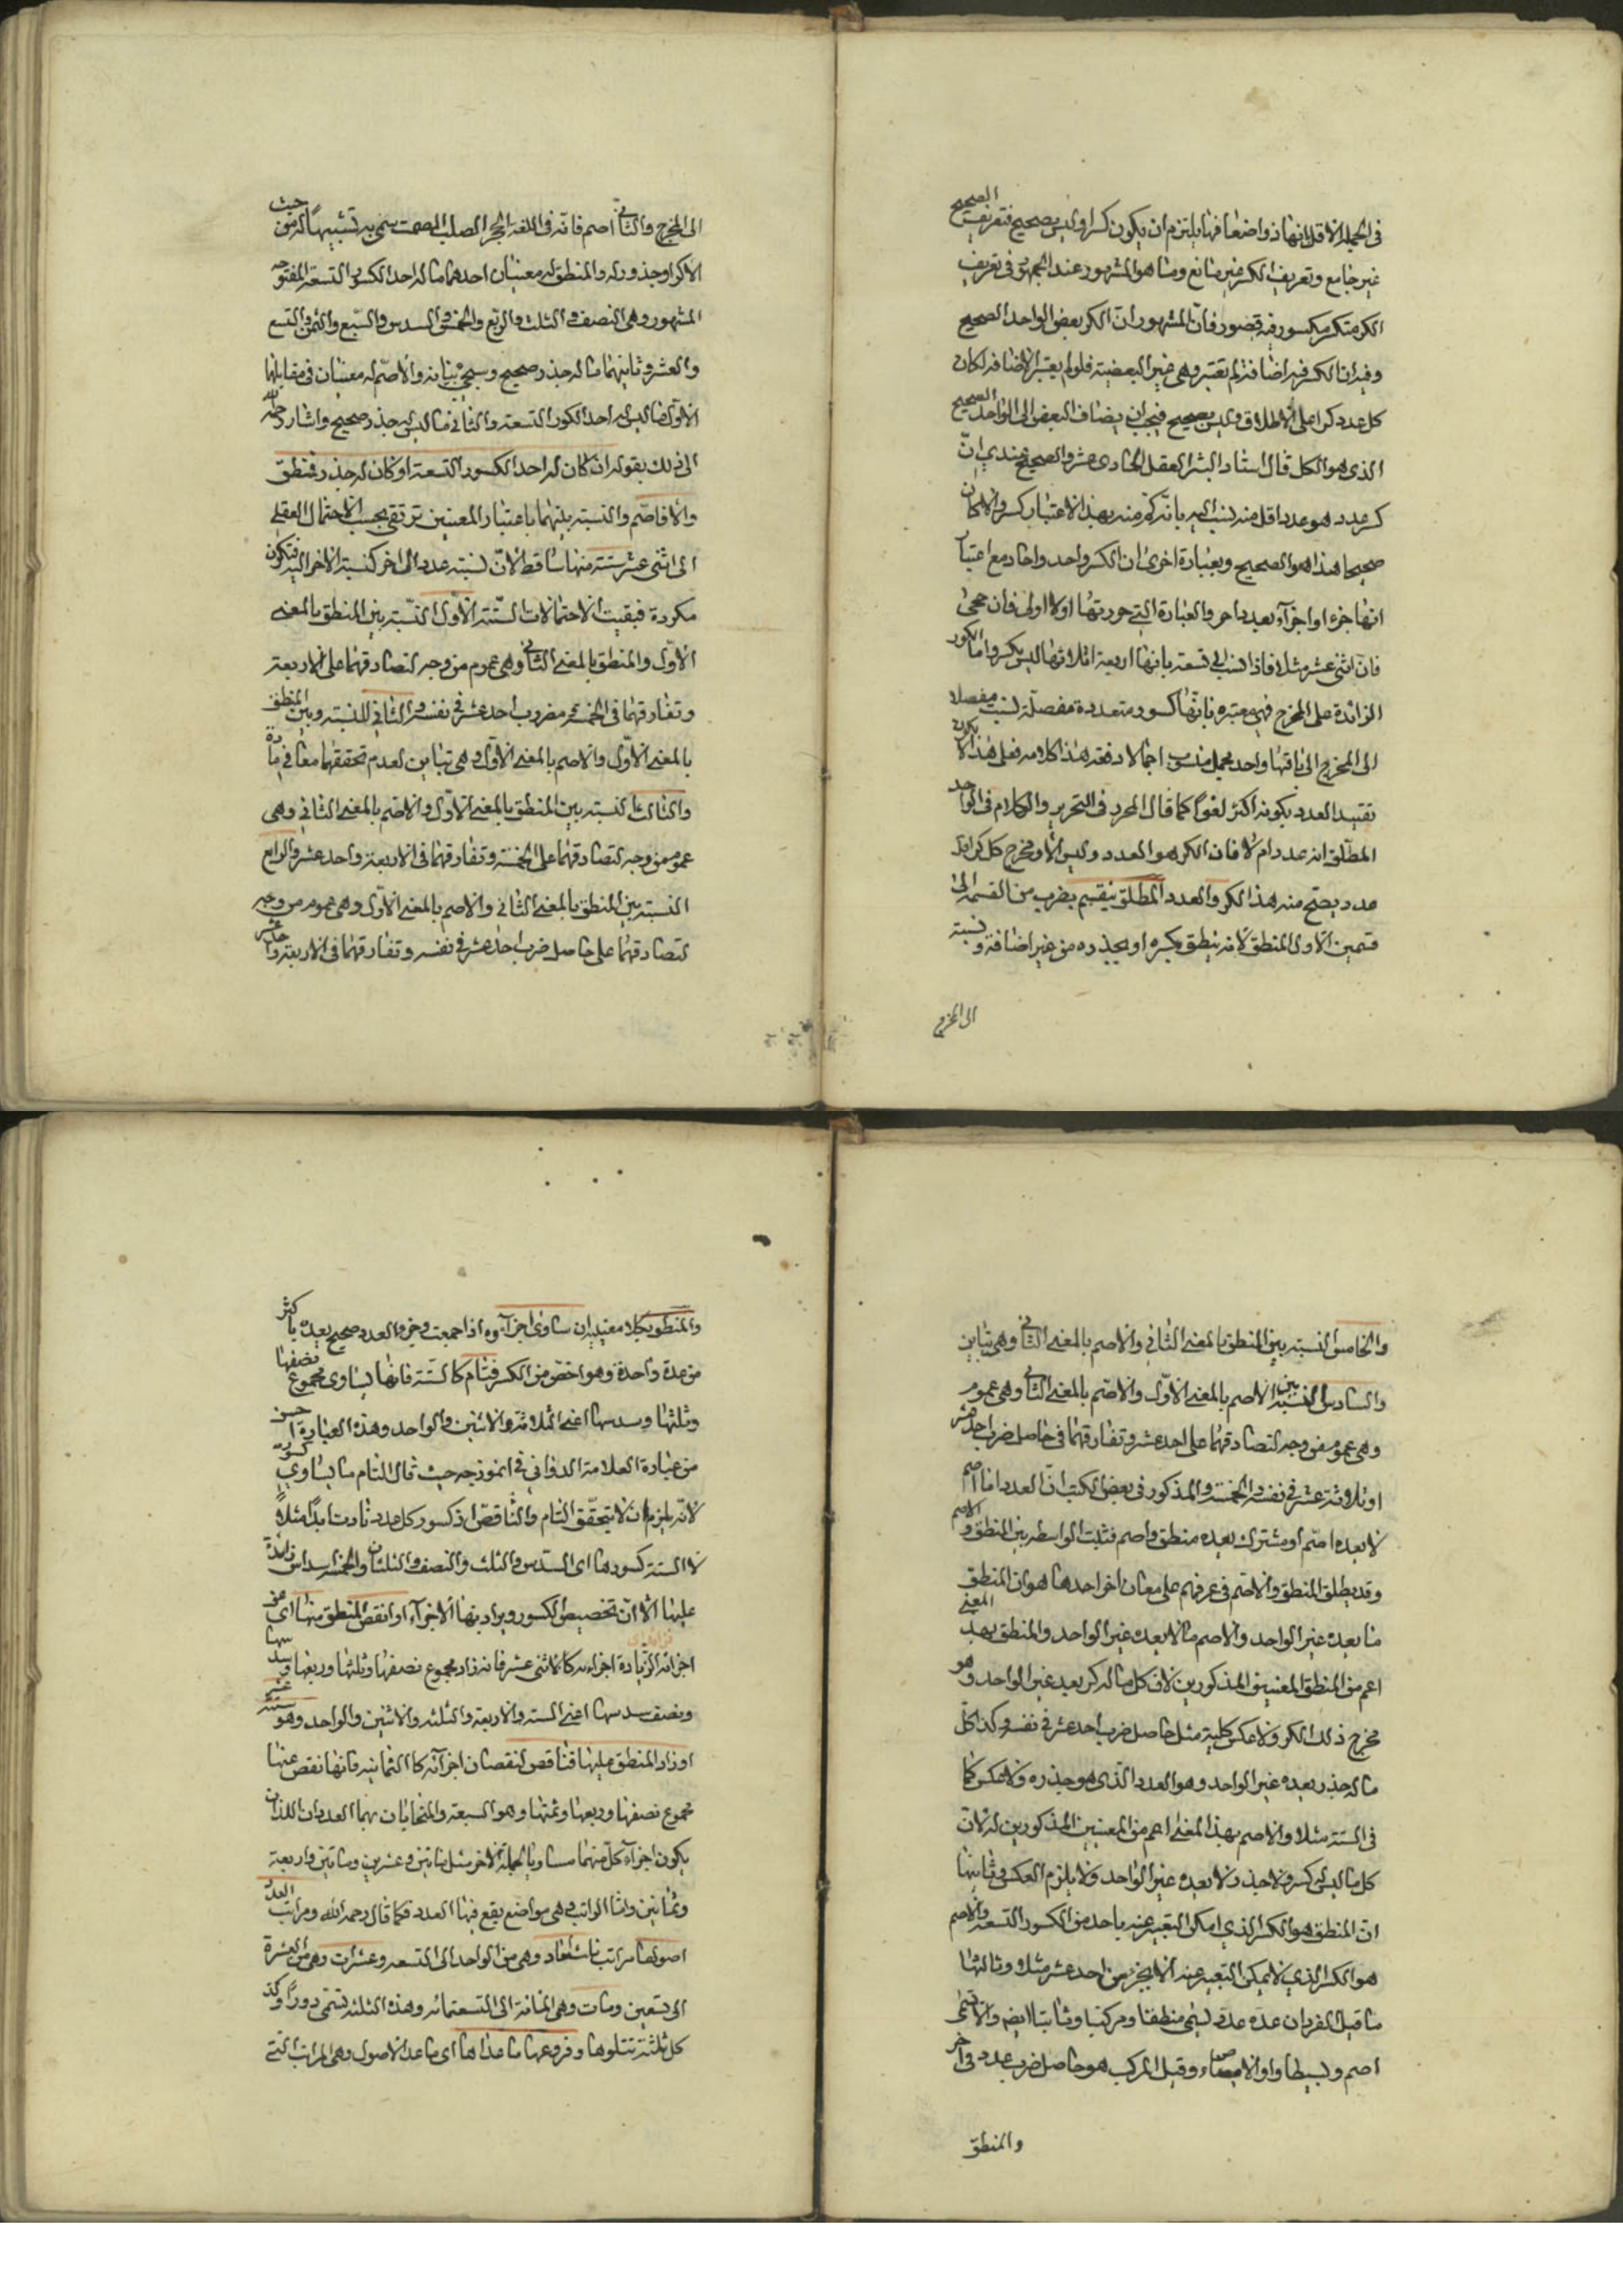 في الجملة الاقل انها ذواضعافها يلتزم ان يكون كسرا وليس بصحيح فتعريف الصحيح
غير جامع وتعريف الكسر غير مانع وما هو المشهور عند الجمهور في تعريف
الكسر متكسر مكسور فيه قصور فان المشهور ان الكسر بعض الواحد الصحيح
وفيه ان الكسر فيه اضافة لم تعتبر وهي غير البعضية فلو لم يعتبر الاضافة لكان
كل عدد كسرا على الاطلاق وليس بصحيح فيجب ان يضاف البعض الى الواحد الصحيح
الذي هو الكل قال استاد البشر العقل الحادي عشر والصحيح عندي ان
كسر عدد هو عدد اقل منه نسب اليه بانه كم منه بهذا الاعتبار كسر وان كان
صحيحا هذا هو الصحيح وبعبارة اخرى ان الكسر واحد واحاد مع اعتبار
انها جزء او اجزآء بعدد ما هو والعبارة التي حررتها اولا اولى فان
فان اثنى عشر مثلا فاذا نسب الى تسعة بانها اربعة اثلاثها ليس بكسر واما الكسور
الزائدة على المخرج فهي معتبرة بانها كسور متعددة مفصلة نسبت مفصلا
الى المخرج الى باقها واحد مجمل منسوب اجمالا دفعة هذا كلامه فعلى هذا لا يكون
تقييد العدد بكونه اكثر لغوا كما قال المحرر في التحرير والكلام في الواحد
المطلق انه عدد ام لا فان الكسر هو العدد وليس الا ومخرج كل كسر اقل
عدد يصح منه هذا الكسر والعدد المطلق ينقسم بضرب من القسمة الى
قسمين الاول المنطق لانه ينطق بكسره او بجذره من غير اضافة ونسبة
الى المخرج
الى المخرج والثاني اصم فانه في اللغة الحجر الصلب المصمت سمي به تشبيها له من حيث
الا كسرا وجذورله والمنطق له معنيان احدهما ما له احد الكسور التسعة المفتوحة
المشهور وهي النصف والثلث والربع والخمس والسدس والسبع والثمن والتسع
والعشر وثانيهما ما له جذر صحيح وسيجئ بيانه والاصم له معنيان في مقابلهما
الاول ما ليس له احد الكسور التسعة والثاني ما ليس له جذر صحيح واشار رحمه الله
الى ذلك بقوله ان كان له احد الكسور التسعة او كان له جذر فمنطق
والا فاصم والنسبة بينهما باعتبار المعنيين ترتقى بحسب الاحتمال العقلي
الى اثنى عشر ستة منها ساقط لان نسبة عدد الى اخر كنسبة الاخر اليه فتكون
مكررة فبقيت الاحتمالات الستة الاول النسبة بين المنطق بالمعنى
الاول والمنطق بالمعنى الثاني وهي عموم من وجه لتصادقهما على الاربعة
وتفارقهما في الخمسة ومضروب احد عشر في نفسه والثاني النسبة وبين المنطق
بالمعنى الاول والاصم بالمعنى الاول وهي تباين لعدم تحققهما معا في مادة
والثالث النسبة بين المنطق بالمعنى الاول والاصم بالمعنى الثاني وهي
عموم من وجه لتصادقهما على الخمسة وتفارقهما في الاربعة واحد عشر والرابع
النسبة بين المنطق بالمعنى الثاني والاصم بالمعنى الاول وهي عموم من وجه
لتصادقهما على حاصل ضرب احد عشر في نفسه وتفارقهما في الاربعة واحد عشر
والخامس النسبة بين المنطق بالمعنى الثاني والاصم بالمعنى الثاني وهي تباين
والسادس النسبة بين الاصم بالمعنى الاول والاصم بالمعنى الثاني وهي عموم
وهي عموم من وجه لتصادقهما على احد عشر وتفارقهما في حاصل ضرب احد عشر
او ثلاثة عشر في نفسه والخمسة والمذكور في بعض الكتب ان العدد اما اصم
لا يعده اصم او مشترك يعده منطق واصم فثبت الواسطة بين المنطق والاصم
وقد يطلق المنطق والاصم في عرفهم على معان اخر احدها هو ان المنطق
ما يعده غير الواحد والاصم ما لا يعده غير الواحد والمنطق بهذا المعنى
اعم من المنطق بالمعنيين المذكورين لان كل ما له كسر يعده غير الواحد وهو
مخرج ذلك الكسر ولا عكس كلية مثل حاصل ضرب احد عشر في نفسه وكذا كل
ما له جذر يعده غير الواحد وهو العدد الذي هو جذره ولا عكس كما
في الستة مثلا والاصم بهذا المعنى اعم من المعنيين المذكورين له لان
كل ما ليس له كسر ولا جذر لا يعده غير الواحد ولا يلزم العكس وثانيها
ان المنطق هو الكسر الذي امكن التعبير عنه باحد من الكسور التسعة والاصم
هو الكسر الذي لا يمكن التعبير عنه الا بجزء من احد عشر مثلا وثالثها
ما قيل الفرد ان عده عدد يسمى منطقا ومركبا وثانيا ايضا والا يسمى
اصم وبسيطا واولا وقيل المركب هو حاصل ضرب عدد في اخر
والمنطق
والمنطق بكلا معنييه ان ساوى اجزآءه اذا جمعت وجزء العدد صحيح يعده باكثر
من عدة واحدة وهو اخص من الكسر فتام كالستة فانها يساوى مجموع نصفها
وثلثها وسدسها اعنى الثلاثة والاثنين والواحد وهذه العبارة احسن
من عبارة العلامة الدواني في انموذجه حيث قال التام ما يساوي كسوره
لانه يلزم ان لا يتحقق التام والناقص اذ كسور كل عدد زادت ابدا مثلا
لا الستة كسورها اى السدس والثلث والنصف والثلثان والخمسة اسداس زايدة
عليها الا ان تخصيص الكسور ويراد بها الاجزآء او انقص المنطق منها اى من
اجزائه فزائد لزيادة اجزاءه كالاثنى عشر فانه زاد مجموع نصفها وثلثها وربعها وسدسها
ونصف سدسها اعنى الستة والاربعة والثلثة والاثنين والواحد وهو ستة عشر
او زاد المنطق عليها فناقص لنقصان اجزائه كالثمانية فانها نقص عنها
مجموع نصفها وربعها وثمنها وهو السبعة والمتحابان هما العددان اللذان
يكون اجزآء كل منهما مساويا لجملة الاخر مثل مائتين وعشرين ومائتين واربعة
وثمانين واما المراتب وهي مواضع يقع فيها العدد فكما قال رحمه الله ومراتب العدد
اصولها مراتب ثلث احاد وهي من الواحد الى التسعة وعشرات وهي من العشرة
الى تسعين ومئات وهي المائة الى التسعمائة وهذه الثلثة تسمى دورا وكذا
كل ثلثة تتلوها وفروعها ما عداها اى ما عدا الاصول وهي المراتب التي